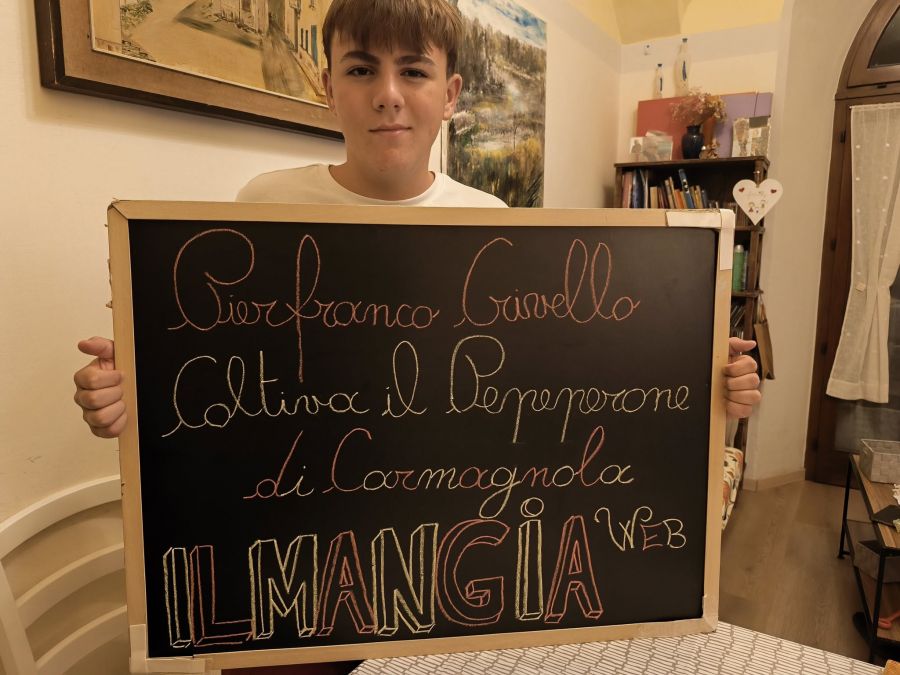 Pierfranco Crivello
Coltiva il Pepeperone
di Carmagnola
IL MANGIA WEB